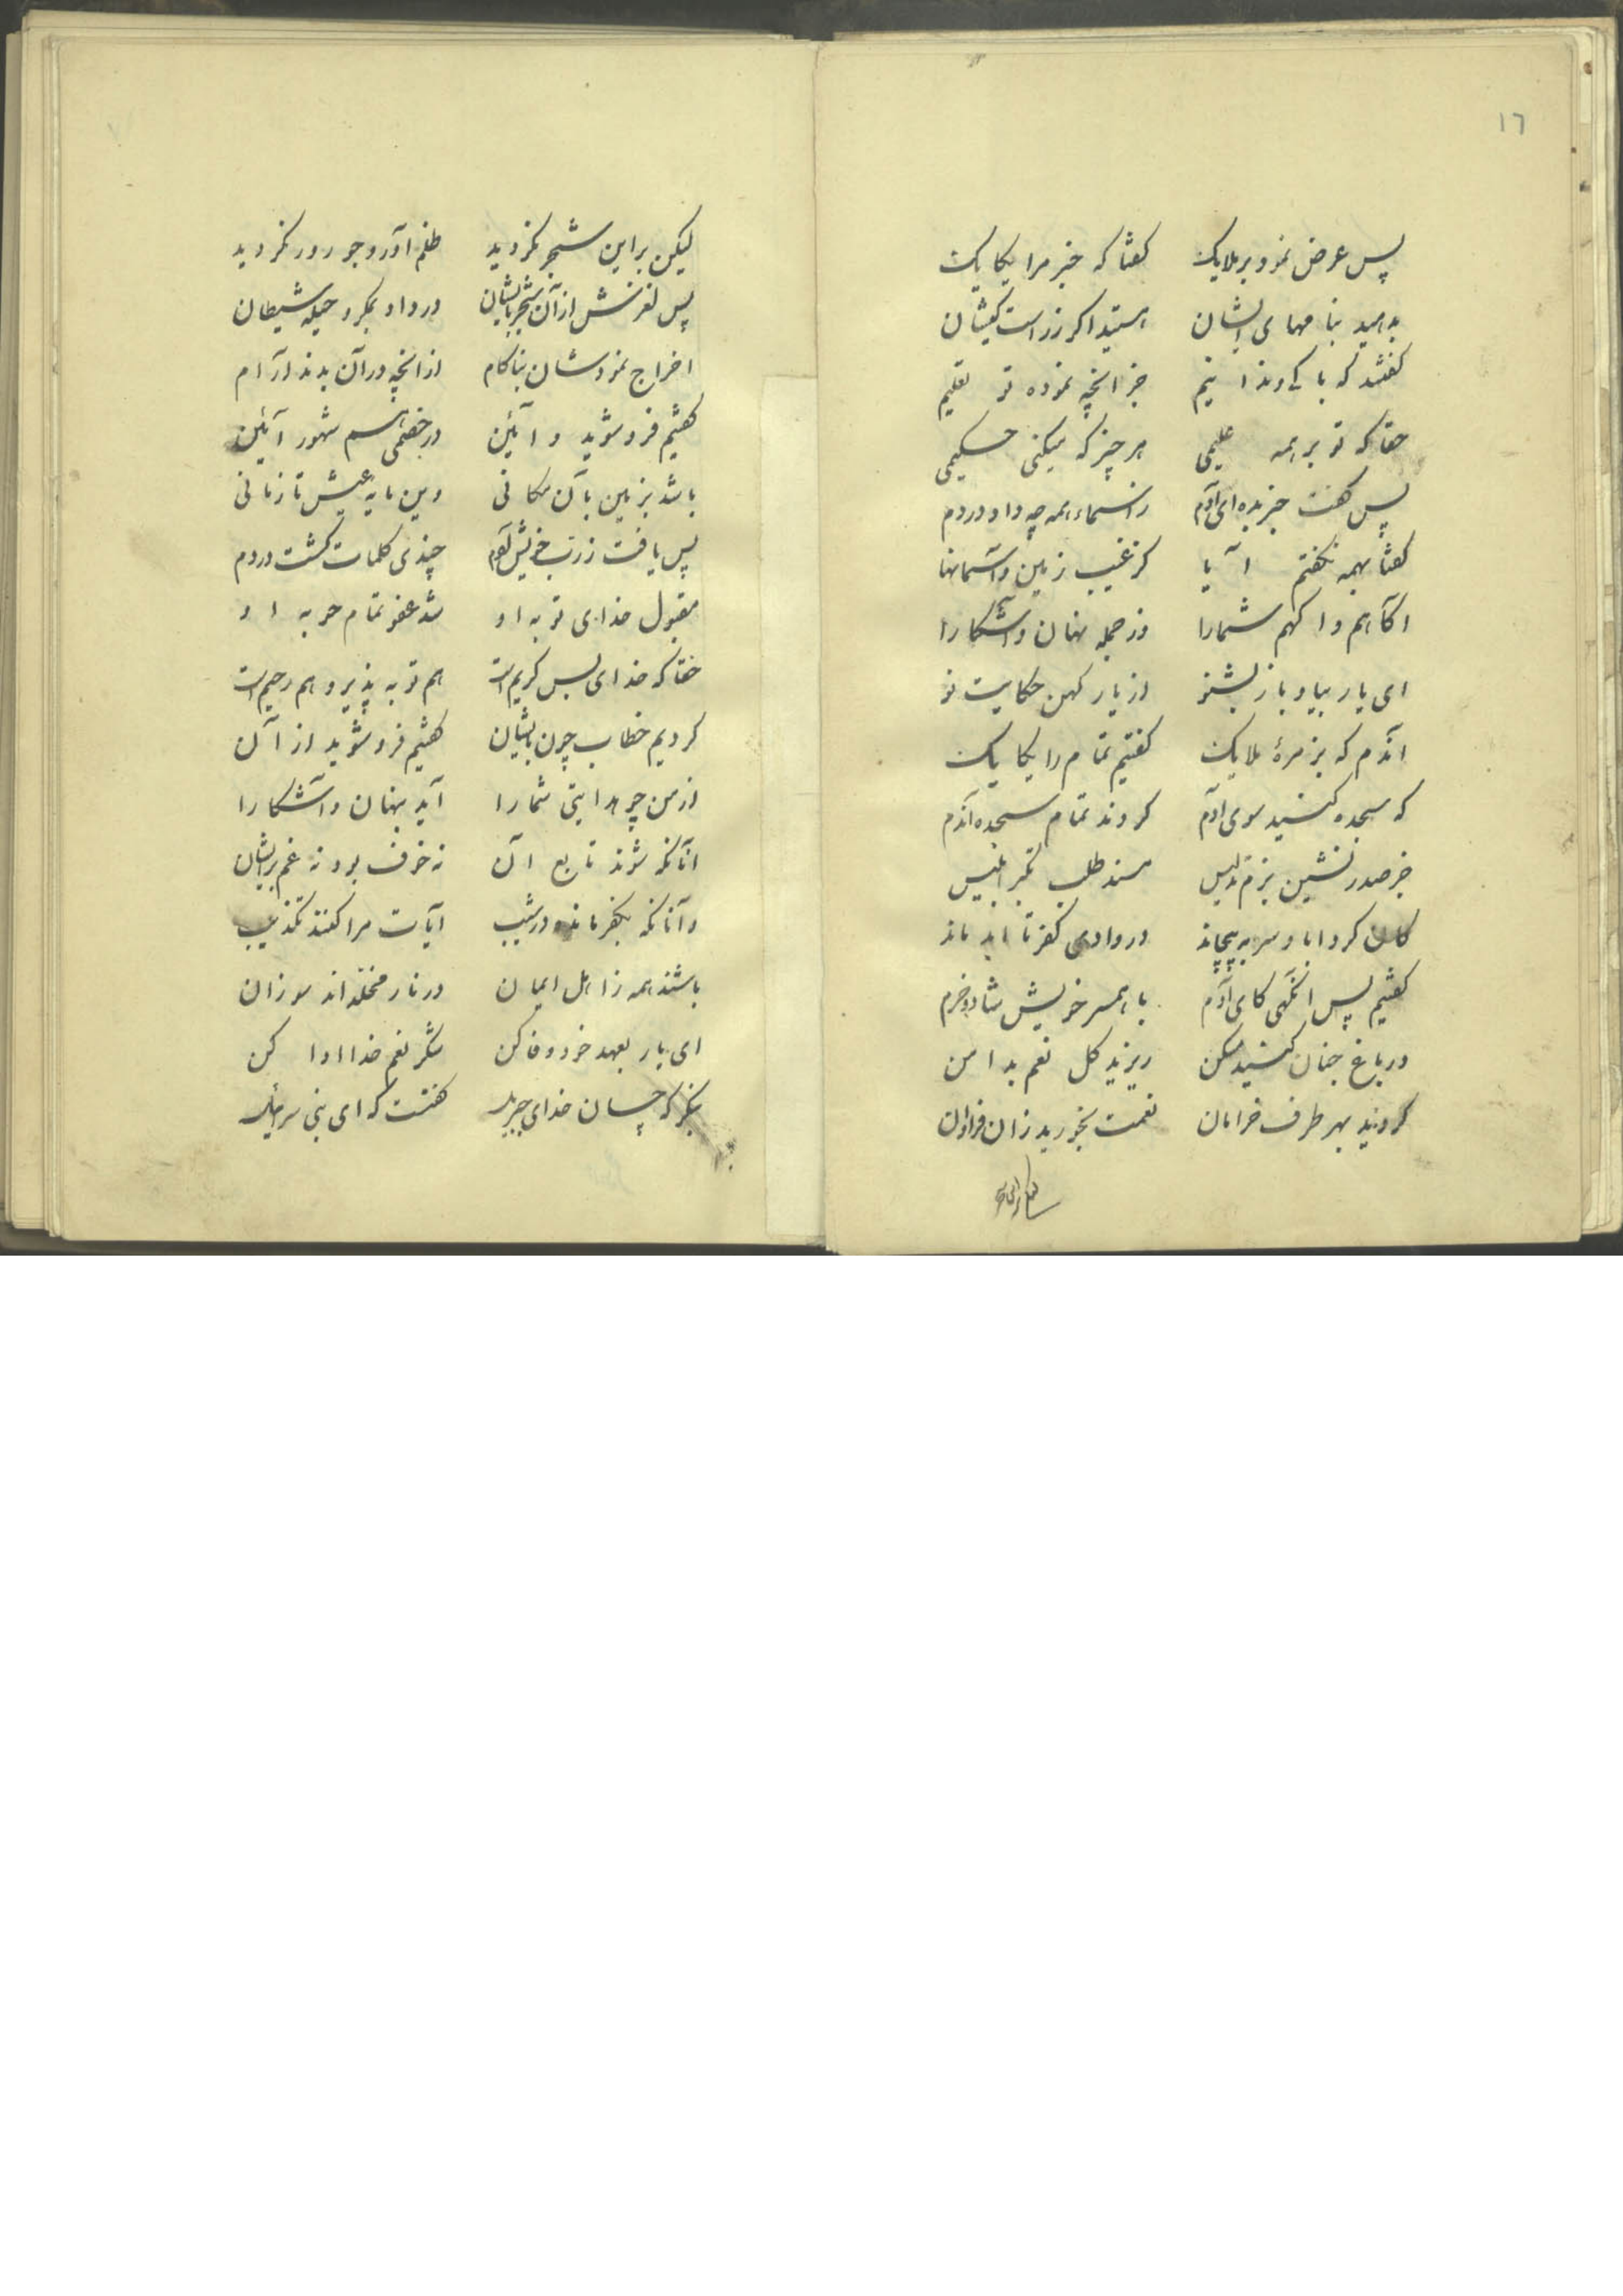 ١٦
پس عرض نمود بر ملایک گفتا که خبر مرا یکایک
بدهید بنامهای ایشان استید اگر ز راست کیشان
گفتند که پاکی و ندانیم جز انچه نموده تو تعلیم
حقا که تو بر همه علیمی هر چیز که میکنی حکیمی
پس گفت خبر بده ای آدم ز اسماء همه چه داد در دم
گفتا بهمه نگفتم آیا کز غیب زمین و آسمانها
آگاهم و آگهم شما را وز جمله نهان و آشکارا
ای یار بیا و باز بشنو از یار کهن حکایت نو
آندم که بزمرهٔ ملایک گفتیم تمام را یکایک
که سجده کنید سوی آدم کردند تمام سجده آندم
جز صدر نشین بزم تدلیس مسند طلب تکبر ابلیس
کان کرد ابا و سر به پیچاند در وادی کفر تا ابد ماند
گفتیم پس انگهی کای آدم با همسر خویش شاد و خرم
در باغ جنان کنید مسکن ریزید گل نعم بدامن
گردید بهر طرف خرامان نعمت بخورید زان فراوان
لیکن بر این شجر نگردید ظلم آور و جور ور نگردید
پس لغزش از آن شجر بایشان در داد بمکر و حیله شیطان
اخراج نمودشان بناکام از انچه در آن بدند آرام
گفتیم فرو شوید و آیین در خصمی هم شهور آیین
باشد بزمین بآن مکانی وین مایه عیش تا زمانی
پس یافت ز رب خویش آدم چندی کلمات گشت در دم
مقبول خدای توبه او شد عفو تمام حوبه او
حقا که خدای بس کریم است هم توبه پذیر و هم رحیم است
کردیم خطاب چون بایشان گفتیم فرو شوید از آن
از من چو هدایتی شما را آید پنهان و آشکارا
آنانکه شوند تابع آن نه خوف بود نه غم بر ایشان
و آنانکه بکفر مانده در شیب آیات مرا کنند تکذیب
باشند همه ز اهل ایمان در نار مخلداند سوزان
ای یار بعهد خود وفا کن شکر نعم خدا ادا کن
بنگر که چسان خدای جبریل گفتست که ای بنی سرئیل